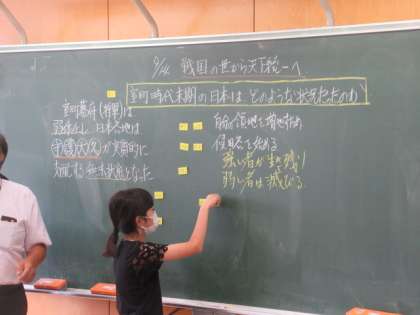 9/14 戦国の世から天下統一へ
室町時代末期の日本は、どのような状況だったのか
室町幕府(将軍)は
弱体化し、日本各地は
守護(大名)が実質的に
支配する
自分の領地を増やすため
侵略を始める
強い者が生き残り
弱い者は滅びる。